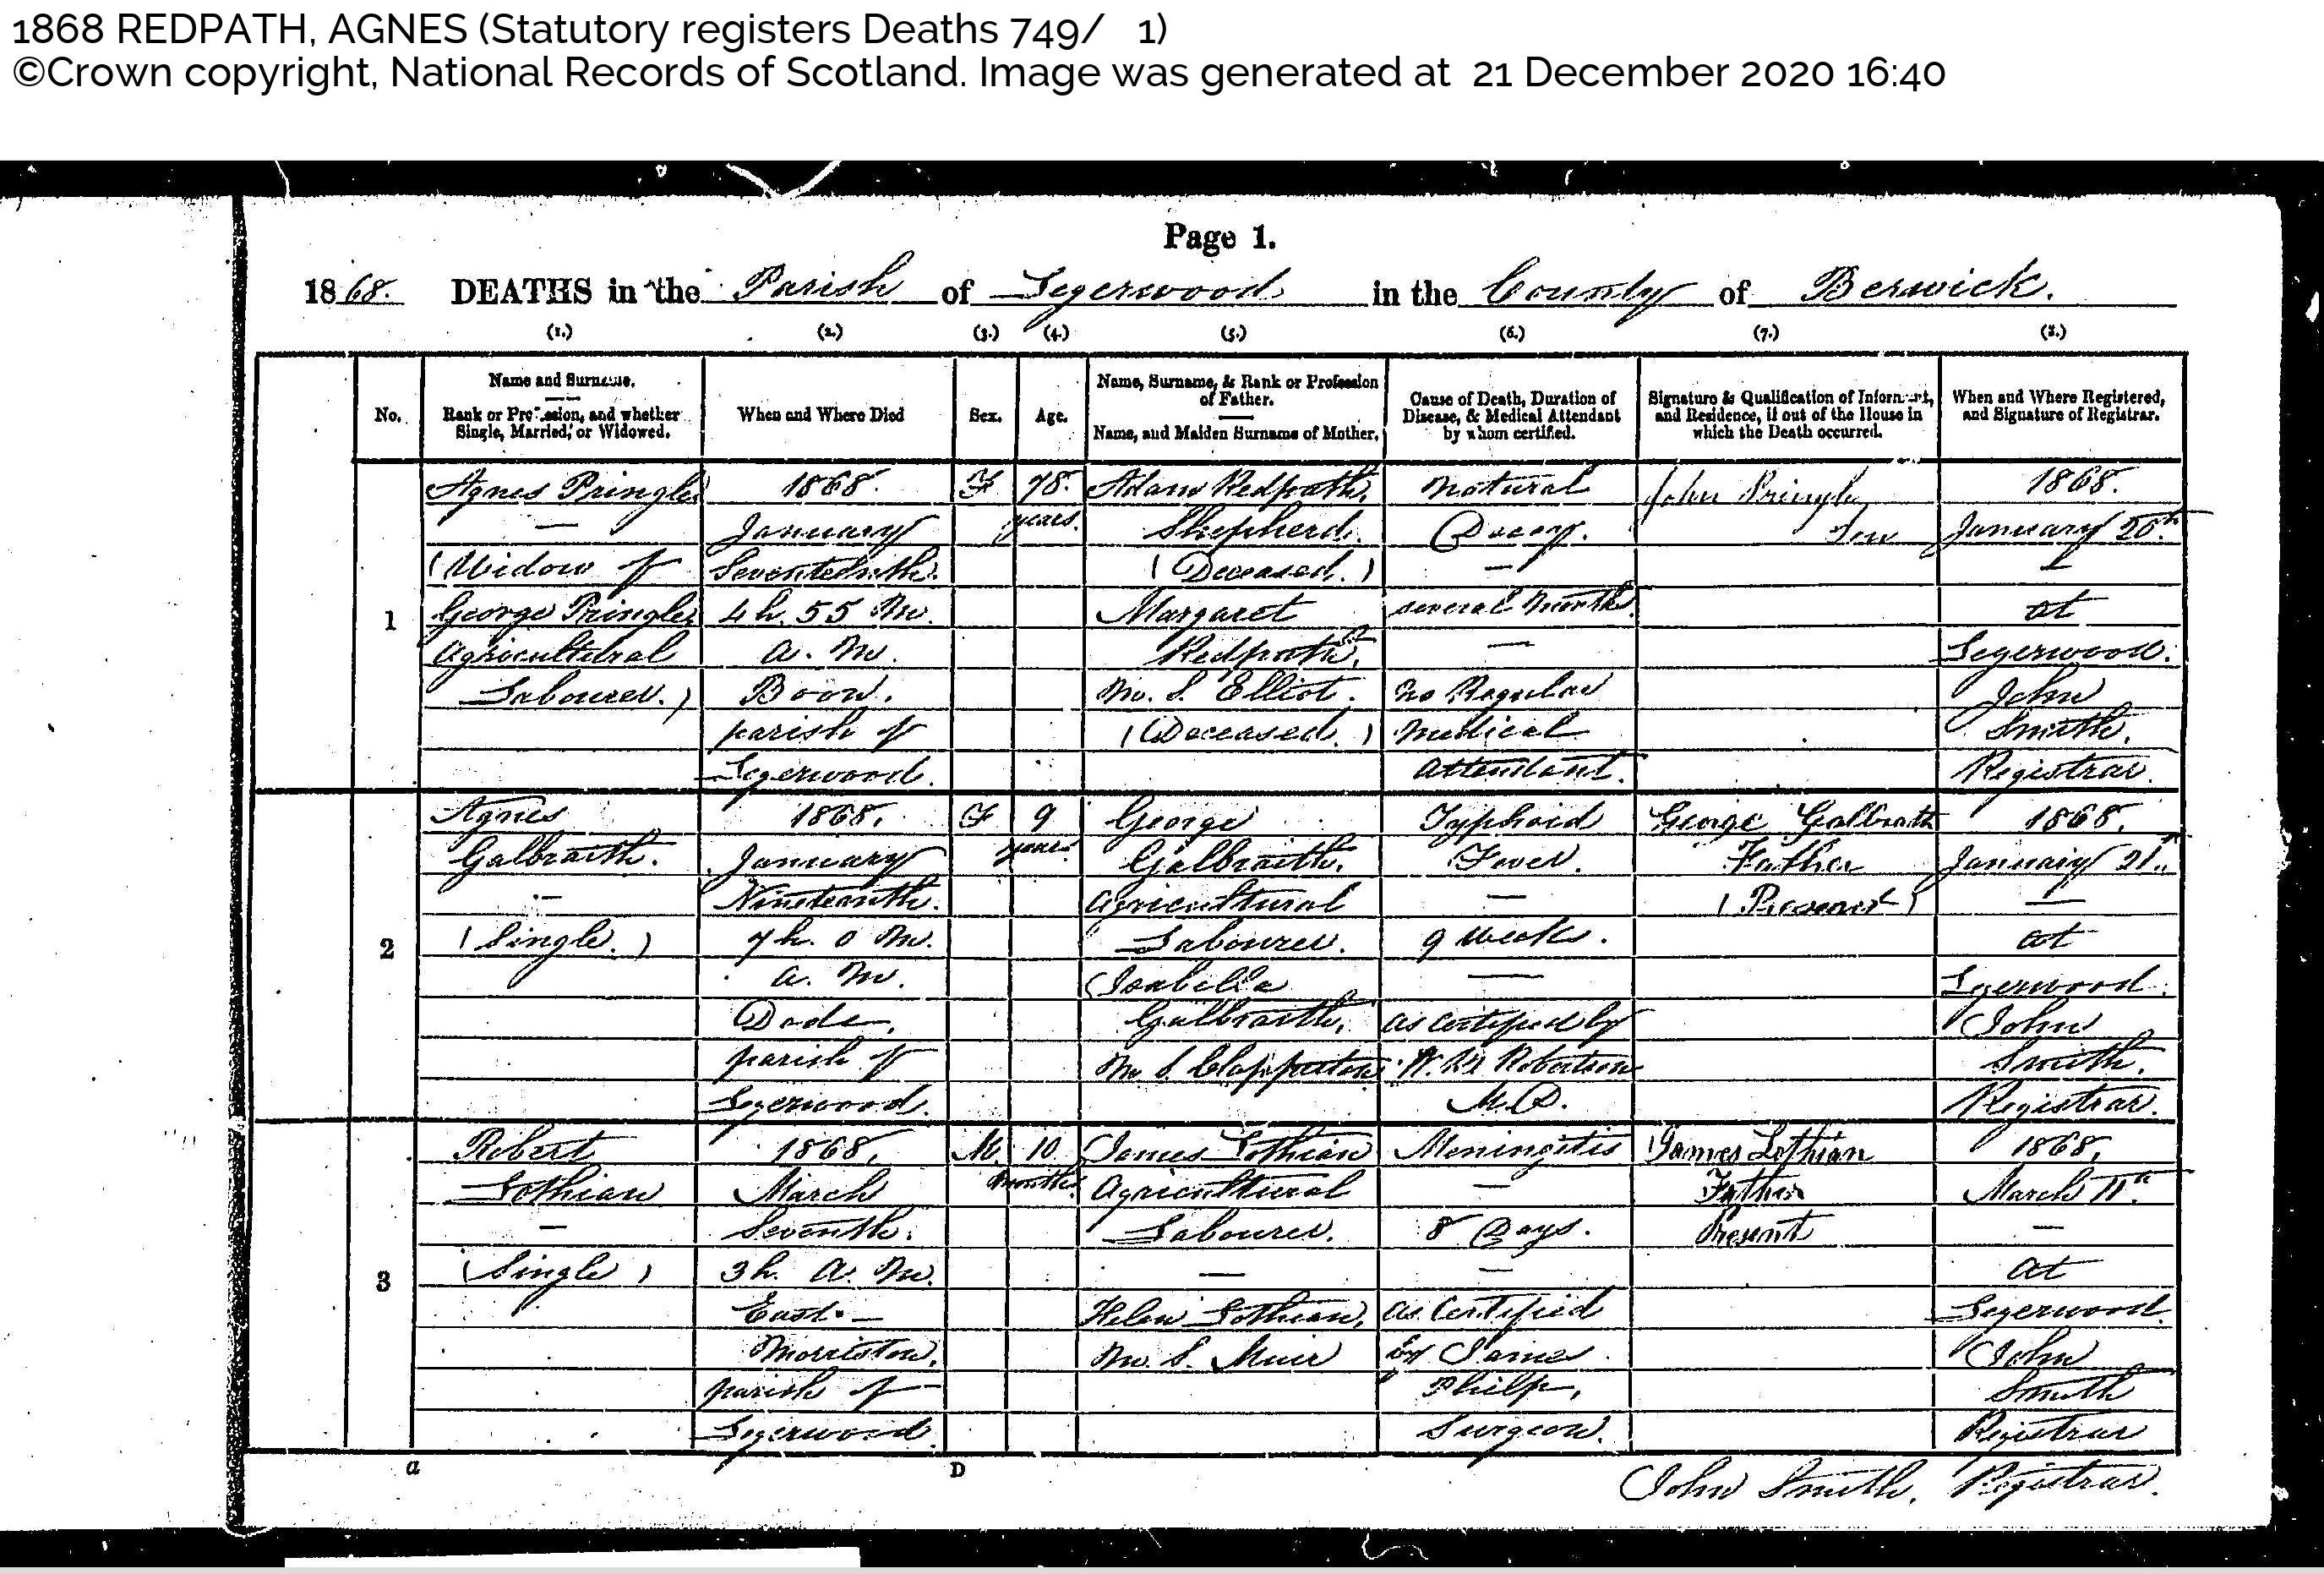 1868 REDPATH, AGNES (Statutory registers Deaths 749/ 1)
©Crown copyright, National Records of Scotland. Image was generated at 21 December 2020 16:40
Page 1.
1868. DEATHS in the Parish of Legerwood in the County of Berwick.
(1.) (2.) (3.) (4.) (5.) (6.) (7.) (8.)
No.
Name and Surname.
Rank or Profession, and whether
Single, Married, or Widowed.
When and Where Died
Sex.
Age.
Name, Surname, & Rank or Profession
of Father.
Name, and Maiden Surname of Mother.
Cause of Death, Duration of
Disease, & Medical Attendant
by whom certified.
Signature & Qualification of Informant,
and Residence, if out of the House in
which the Death occurred.
When and Where Registered,
and Signature of Registrar.
1
Agnes Pringle
—
(Widow of
George Pringle
Agricultural
Labourer.)
1868.
January
Seventeenth.
4 h. 55 m.
a. m.
Boon.
parish of
Legerwood.
F
78.
years.
Adam Redpath,
Shepherd.
(Deceased.)
Margaret
Redpath,
m. S. Elliot.
(Deceased.)
Natural
Decay.
—
several months
—
no Regular
medical
Attendant.
John Pringle
Son
1868.
January 20th.
—
at
Legerwood.
John
Smith.
Registrar.
2
Agnes
Galbraith.
—
(Single.)
1868.
January
Nineteenth.
7 h. 0 m.
a. m.
Dods,
parish of
Legerwood.
F
9
years
George
Galbraith,
Agricultural
Labourer.
Isabella
Galbraith,
m S. Clapperton
Typhoid
Fever.
—
9 weeks.
—
as certified by
Robertson
M.D.
George Galbraith
Father
(Present)
1868.
January 21st.
—
at
Legerwood.
John
Smith.
Registrar.
3
Robert
Lothian
—
(Single)
1868.
March
Seventh.
3 h. A. m.
East —
Morriston,
parish of
Legerwood.
M.
10
months.
James Lothian
Agricultural
Labourer.
—
Helen Lothian,
m. S. Muir
Meningitis
—
8 Days.
—
as Certified
By James
Philp,
Surgeon.
James Lothian
Father
Present
1868.
March 11th.
—
at
Legerwood.
John
Smith
Registrar
a D
John Smith, Registrar.